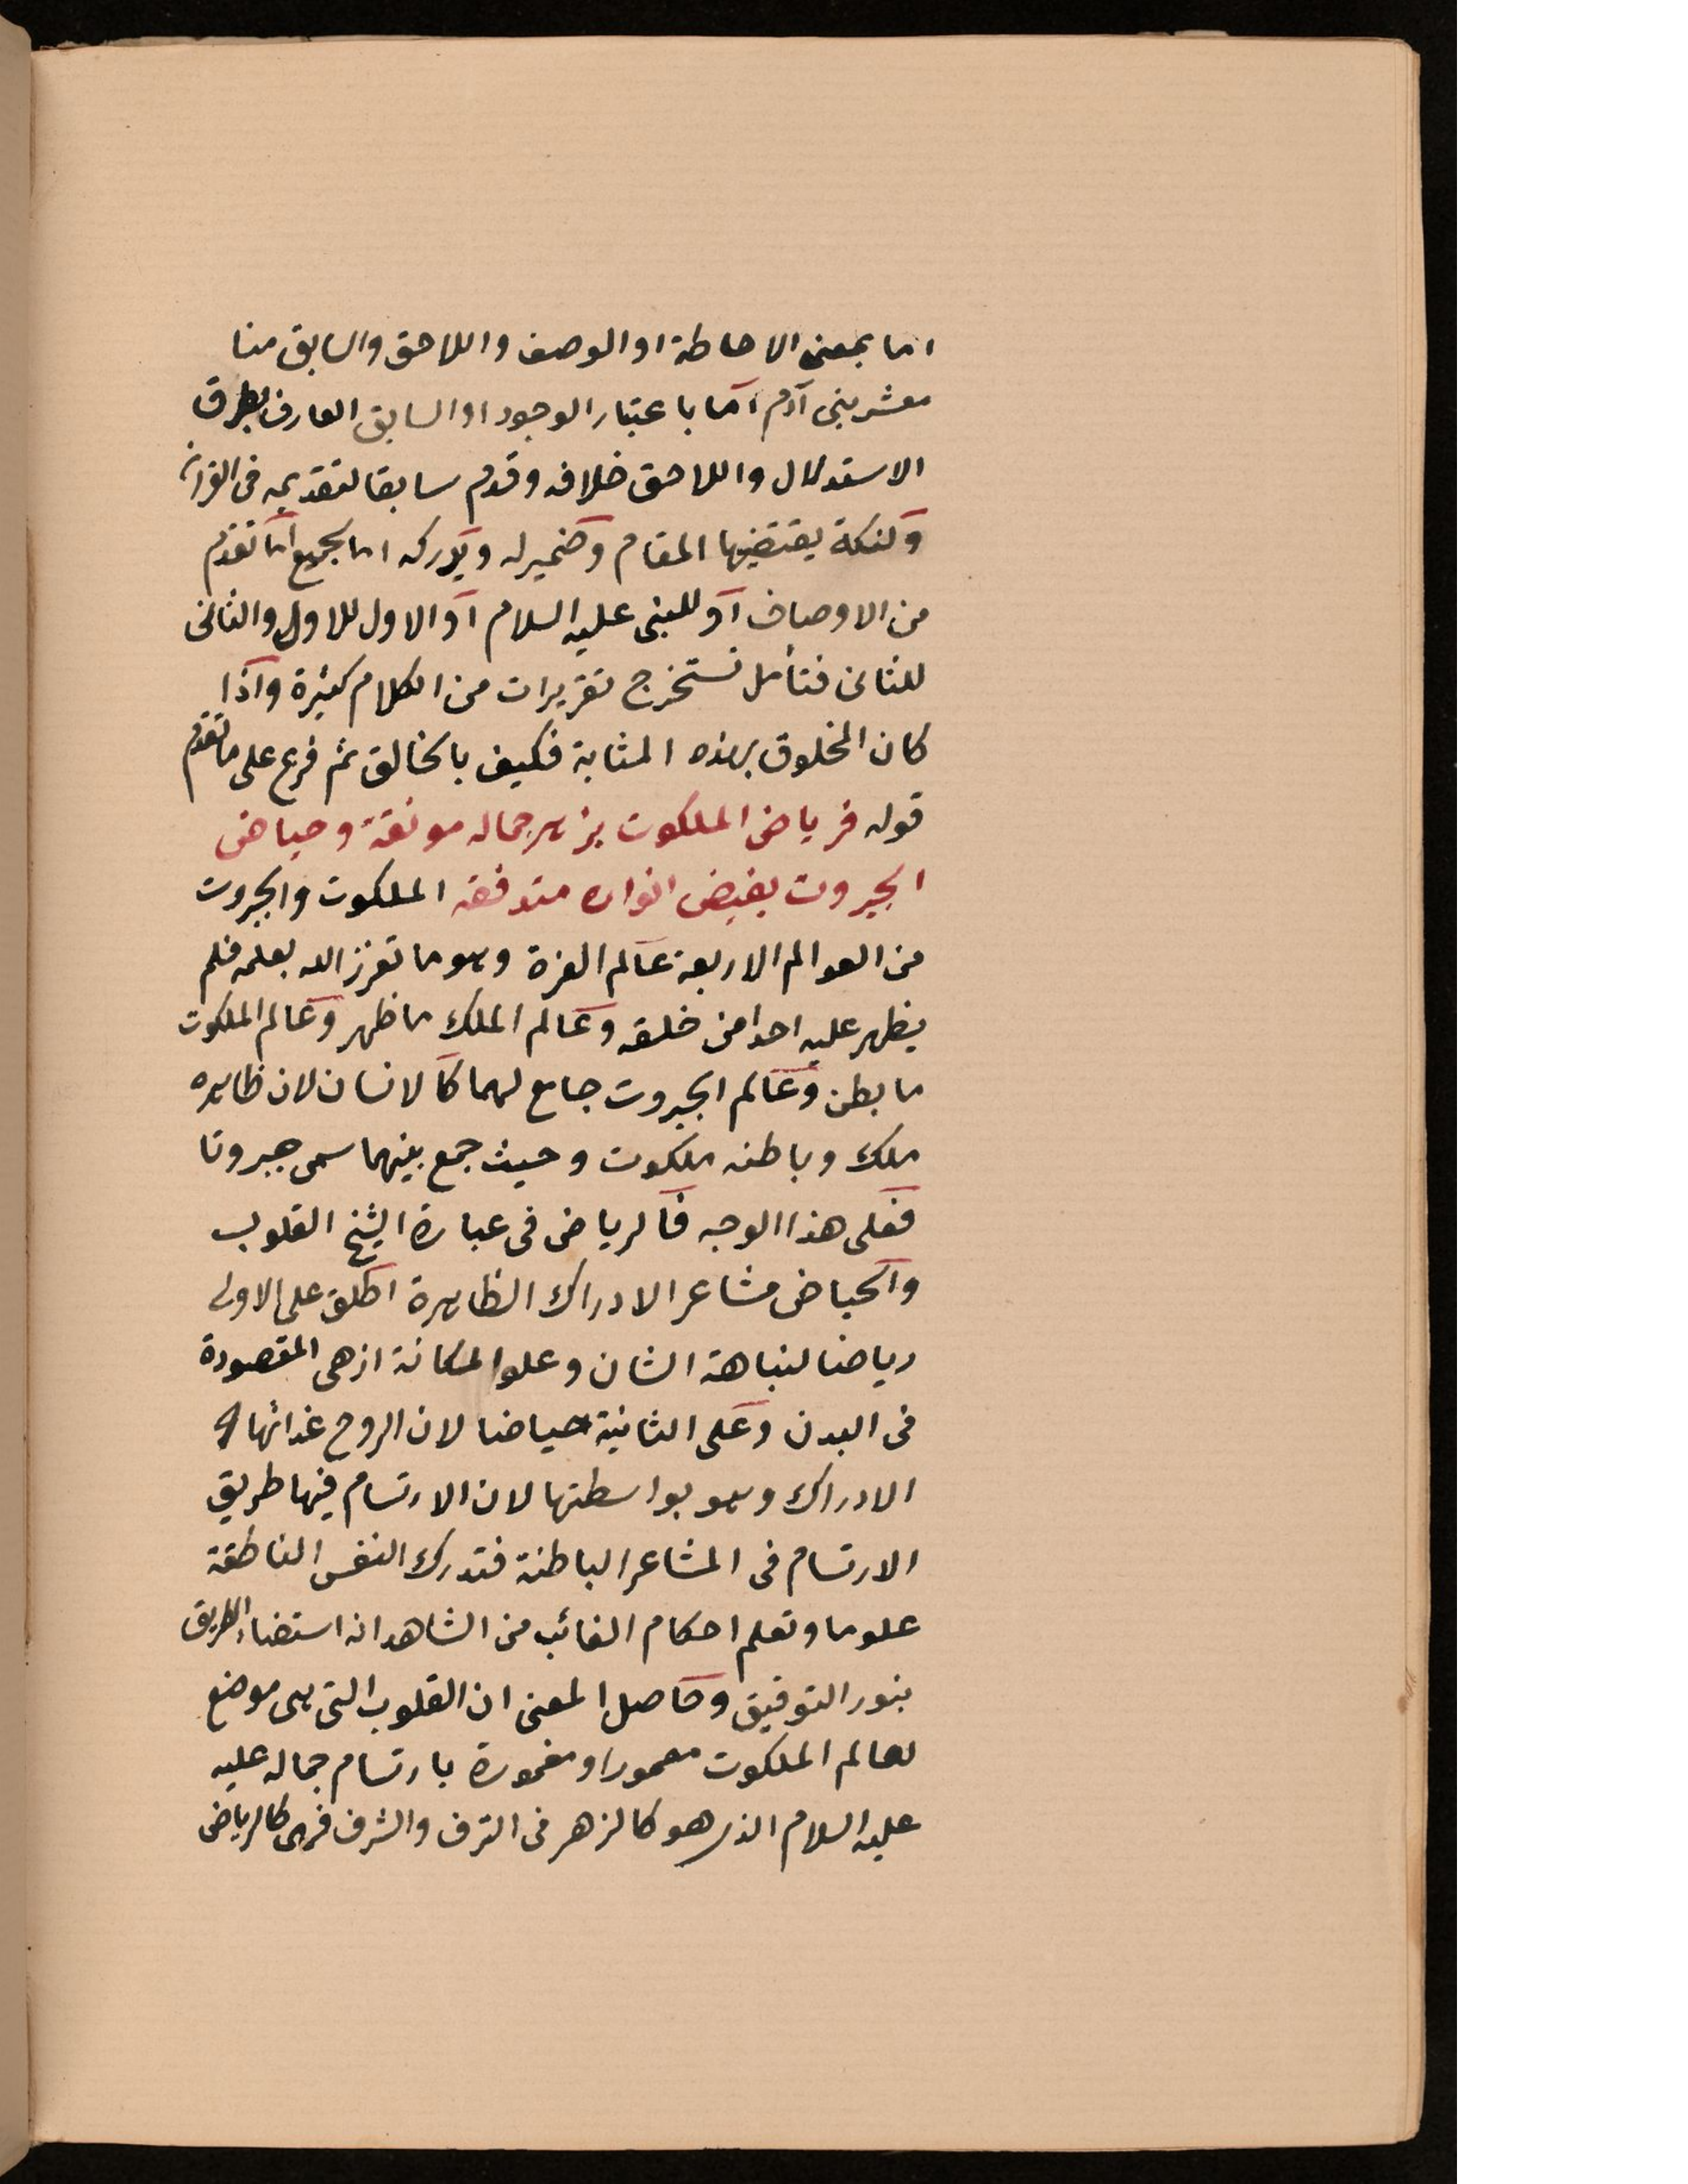 اما بمعنى الاحاطة او الوصف واللاحق والسابق منا
معشر بنى آدم اما باعتبار الوجود او السابق العارف بطرق
الاستدلال واللاحق خلافه وقدم سابقا لتقديمه فى القران
ولنكتة يقتضيها المقام وضمير له ويدركه اما لجميع ما تقدم
من الاوصاف او للنبى عليه السلام او الاول للاول والثانى
للثانى فتأمل تستخرج تقريرات من الكلام كثيرة واذا
كان المخلوق بهذه المثابة فكيف بالخالق ثم فرع على ما تقدم
قوله فرياض الملكوت بزهر جماله مونقة وحياض
الجبروت بفيض انواره متدفقه الملكوت والجبروت
من العوالم الاربعة عالم العزة وهو ما تعزز الله بعلمه فلم
يظهر عليه احدا من خلقه وعالم الملك ما ظهر وعالم الملكوت
ما بطن وعالم الجبروت جامع لهما كالانسان لان ظاهره
ملك وباطنه ملكوت وحيث جمع بينهما سمى جبروتا
فعلى هذا الوجه فالرياض فى عبارة الشيخ القلوب
والحياض مشاعر الادراك الظاهرة اطلق على الاولى
رياضا لنباهة الشان وعلو المكانة اذ هى المقصودة
فى البدن وعلى الثانية حياضا لان الروح غذائها
الادراك وهو بواسطتها لان الارتسام فيها طريق
الارتسام فى المشاعر الباطنة فتدرك النفس الناطقة
علوما وتعلم احكام الغائب من الشاهد ان استضاء الطريق
بنور التوفيق وحاصل المعنى ان القلوب التى هى موضع
لعالم الملكوت معمورا ومغمورة بارتسام جماله عليه
عليه السلام الذى هو كالزهر فى الترف والشرف فهى كالرياض